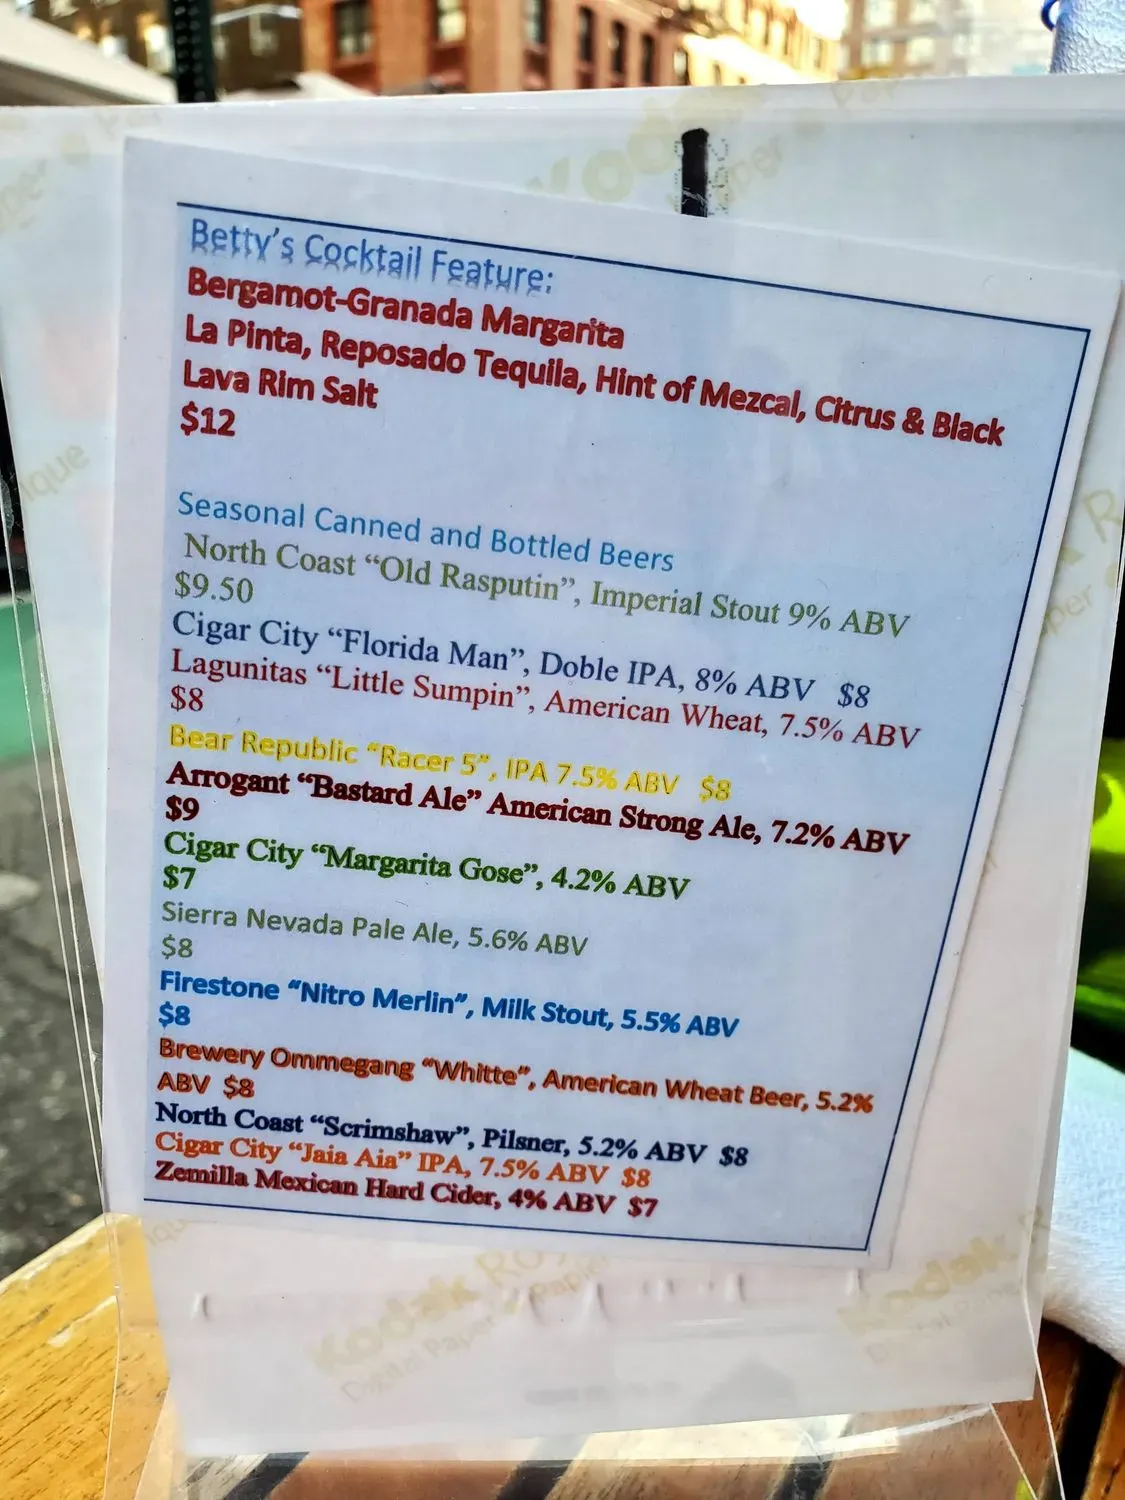 Betty's Cocktail Feature:
Bergamot-Granada Margarita
La Pinta, Reposado Tequila, Hint of Mezcal, Citrus & Black
Lava Rim Salt
$12
Seasonal Canned and Bottled Beers
North Coast “Old Rasputin”, Imperial Stout 9% ABV
$9.50
Cigar City “Florida Man”, Doble IPA, 8% ABV $8
Lagunitas “Little Sumpin”, American Wheat, 7.5% ABV
$8
Bear Republic “Racer 5”, IPA 7.5% ABV $8
Arrogant “Bastard Ale” American Strong Ale, 7.2% ABV
$9
Cigar City “Margarita Gose”, 4.2% ABV
$7
Sierra Nevada Pale Ale, 5.6% ABV
$8
Firestone “Nitro Merlin”, Milk Stout, 5.5% ABV
$8
Brewery Ommegang “Whitte”, American Wheat Beer, 5.2%
ABV $8
North Coast “Scrimshaw”, Pilsner, 5.2% ABV $8
Cigar City “Jaia Aia” IPA, 7.5% ABV $8
Zemilla Mexican Hard Cider, 4% ABV $7
Kodak
Digital Paper
Kodak